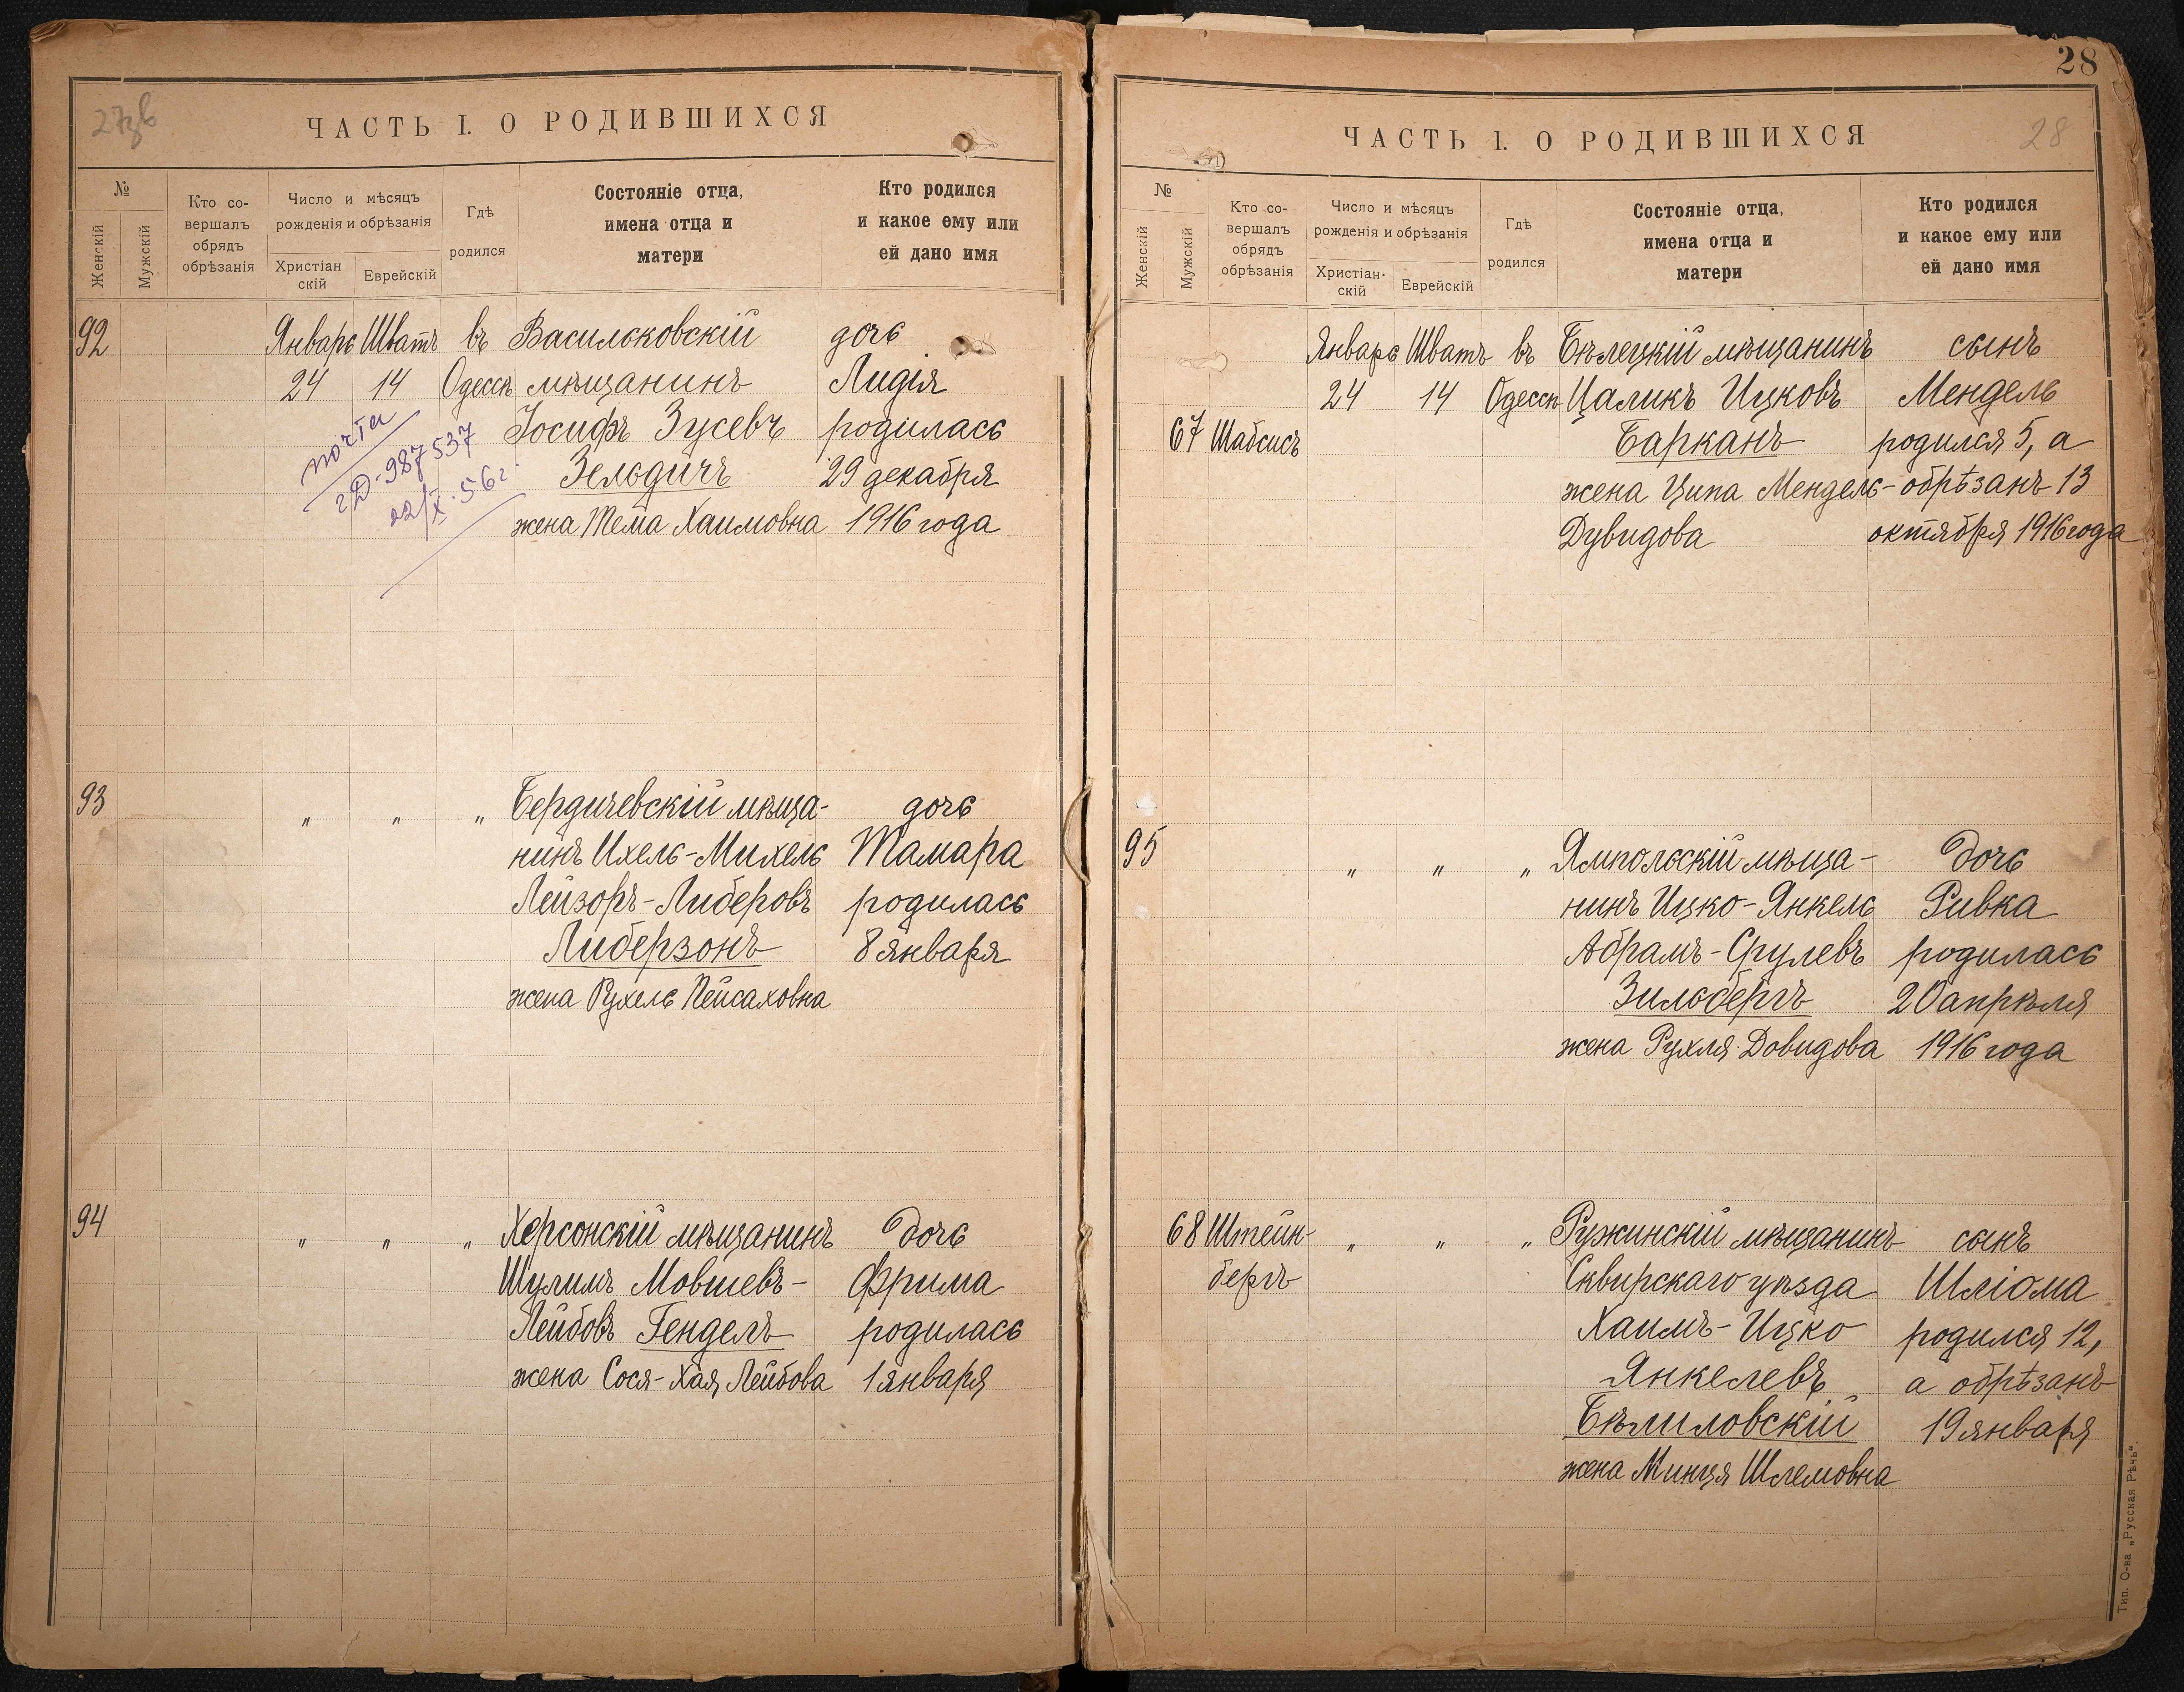 27зв
ЧАСТЬ I. О РОДИВШИХСЯ
№
Женскій
Мужскій
Кто со-
вершалъ
обрядъ
обрѣзанія
Число и мѣсяцъ
рожденія и обрѣзанія
Христіан
скій
Еврейскій
Гдѣ
родился
Состояніе отца,
имена отца и
матери
Кто родился
и какое ему или
ей дано имя
92
Январь
24
Шватъ
14
въ
Одессѣ
Васильковскій
мѣщанинъ
Іосифъ Зусевъ
Зельдичъ
жена Тема Хаимовна
дочь
Лидія
родилась
29 декабря
1916 года
почта
2Д-987537
22/X.56г.
93
„ „ „
Бердичевскій мѣща-
нинъ Ихель-Михель
Лейзоръ-Либеровъ
Либерзонъ
жена Рухель Пейсаховна
дочь
Тамара
родилась
8 января
94
„ „ „
Херсонскій мѣщанинъ
Шулимъ Мовшевъ-
Лейбовъ Гендель
жена Сося-Хая Лейбова
дочь
Фрима
родилась
1 января
28
ЧАСТЬ I. О РОДИВШИХСЯ
28
№
Женскій
Мужскій
Кто со-
вершалъ
обрядъ
обрѣзанія
Число и мѣсяцъ
рожденія и обрѣзанія
Христіан-
скій
Еврейскій
Гдѣ
родился
Состояніе отца,
имена отца и
матери
Кто родился
и какое ему или
ей дано имя
67
Шабсисъ
Январь
24
Шватъ
14
въ
Одессѣ
Бѣлецкій мѣщанинъ
Цаликъ Ицковъ
Барканъ
жена Ципа Мендель-
Дувидова
сынъ
Мендель
родился 5, а
обрѣзанъ 13
октября 1916 года
95
„ „ „
Ямпольскій мѣща-
нинъ Ицко-Янкель
Абрамъ-Срулевъ
Зильбергъ
жена Рухля Довидова
дочь
Ривка
родилась
20 апрѣля
1916 года
68
Штейн-
бергъ
„ „ „
Ружинскій мѣщанинъ
Сквирскаго уѣзда
Хаимъ-Ицко
Янкелевъ
Бѣлиловскій
жена Минця Шлемовна
сынъ
Шліома
родился 12,
а обрѣзанъ
19 января
Тип. О-ва „Русская Рѣчь".